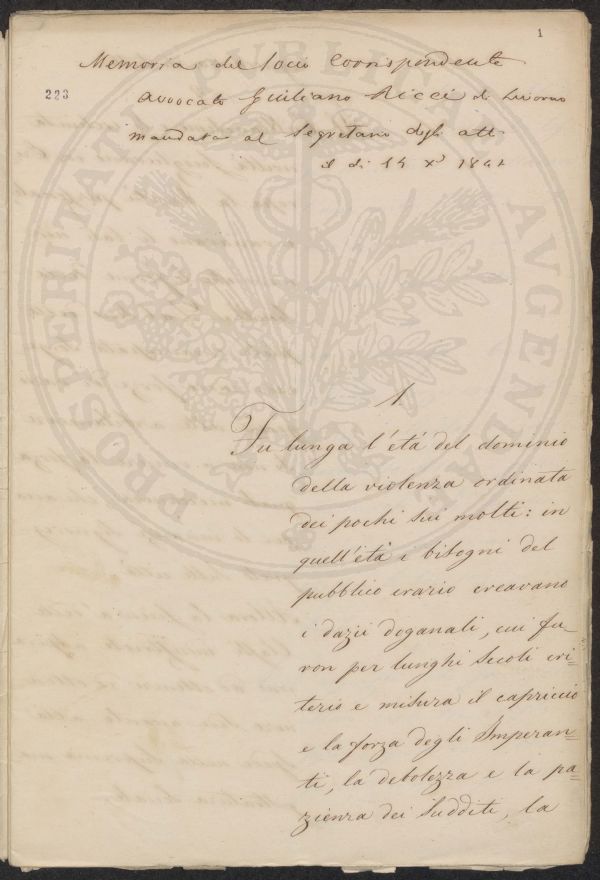 1
Memoria del Socio Corrispondente
223
Avvocato Giuliano Ricci di Livorno
mandata al Segretario degli atti
il di 14 Xe 1841
1
Fu lunga l'età del dominio
della violenza ordinata
dei pochi sui molti: in
quell'età i bisogni del
pubblico erario creavano
i dazii doganali, cui fu-
ron per lunghi secoli cri-
terio e misura il capriccio
e la forza degli Imperan-
ti, la debolezza e la pa-
zienza dei Sudditi, la
PROSPERITATI PUBLICAE AUGENDAE